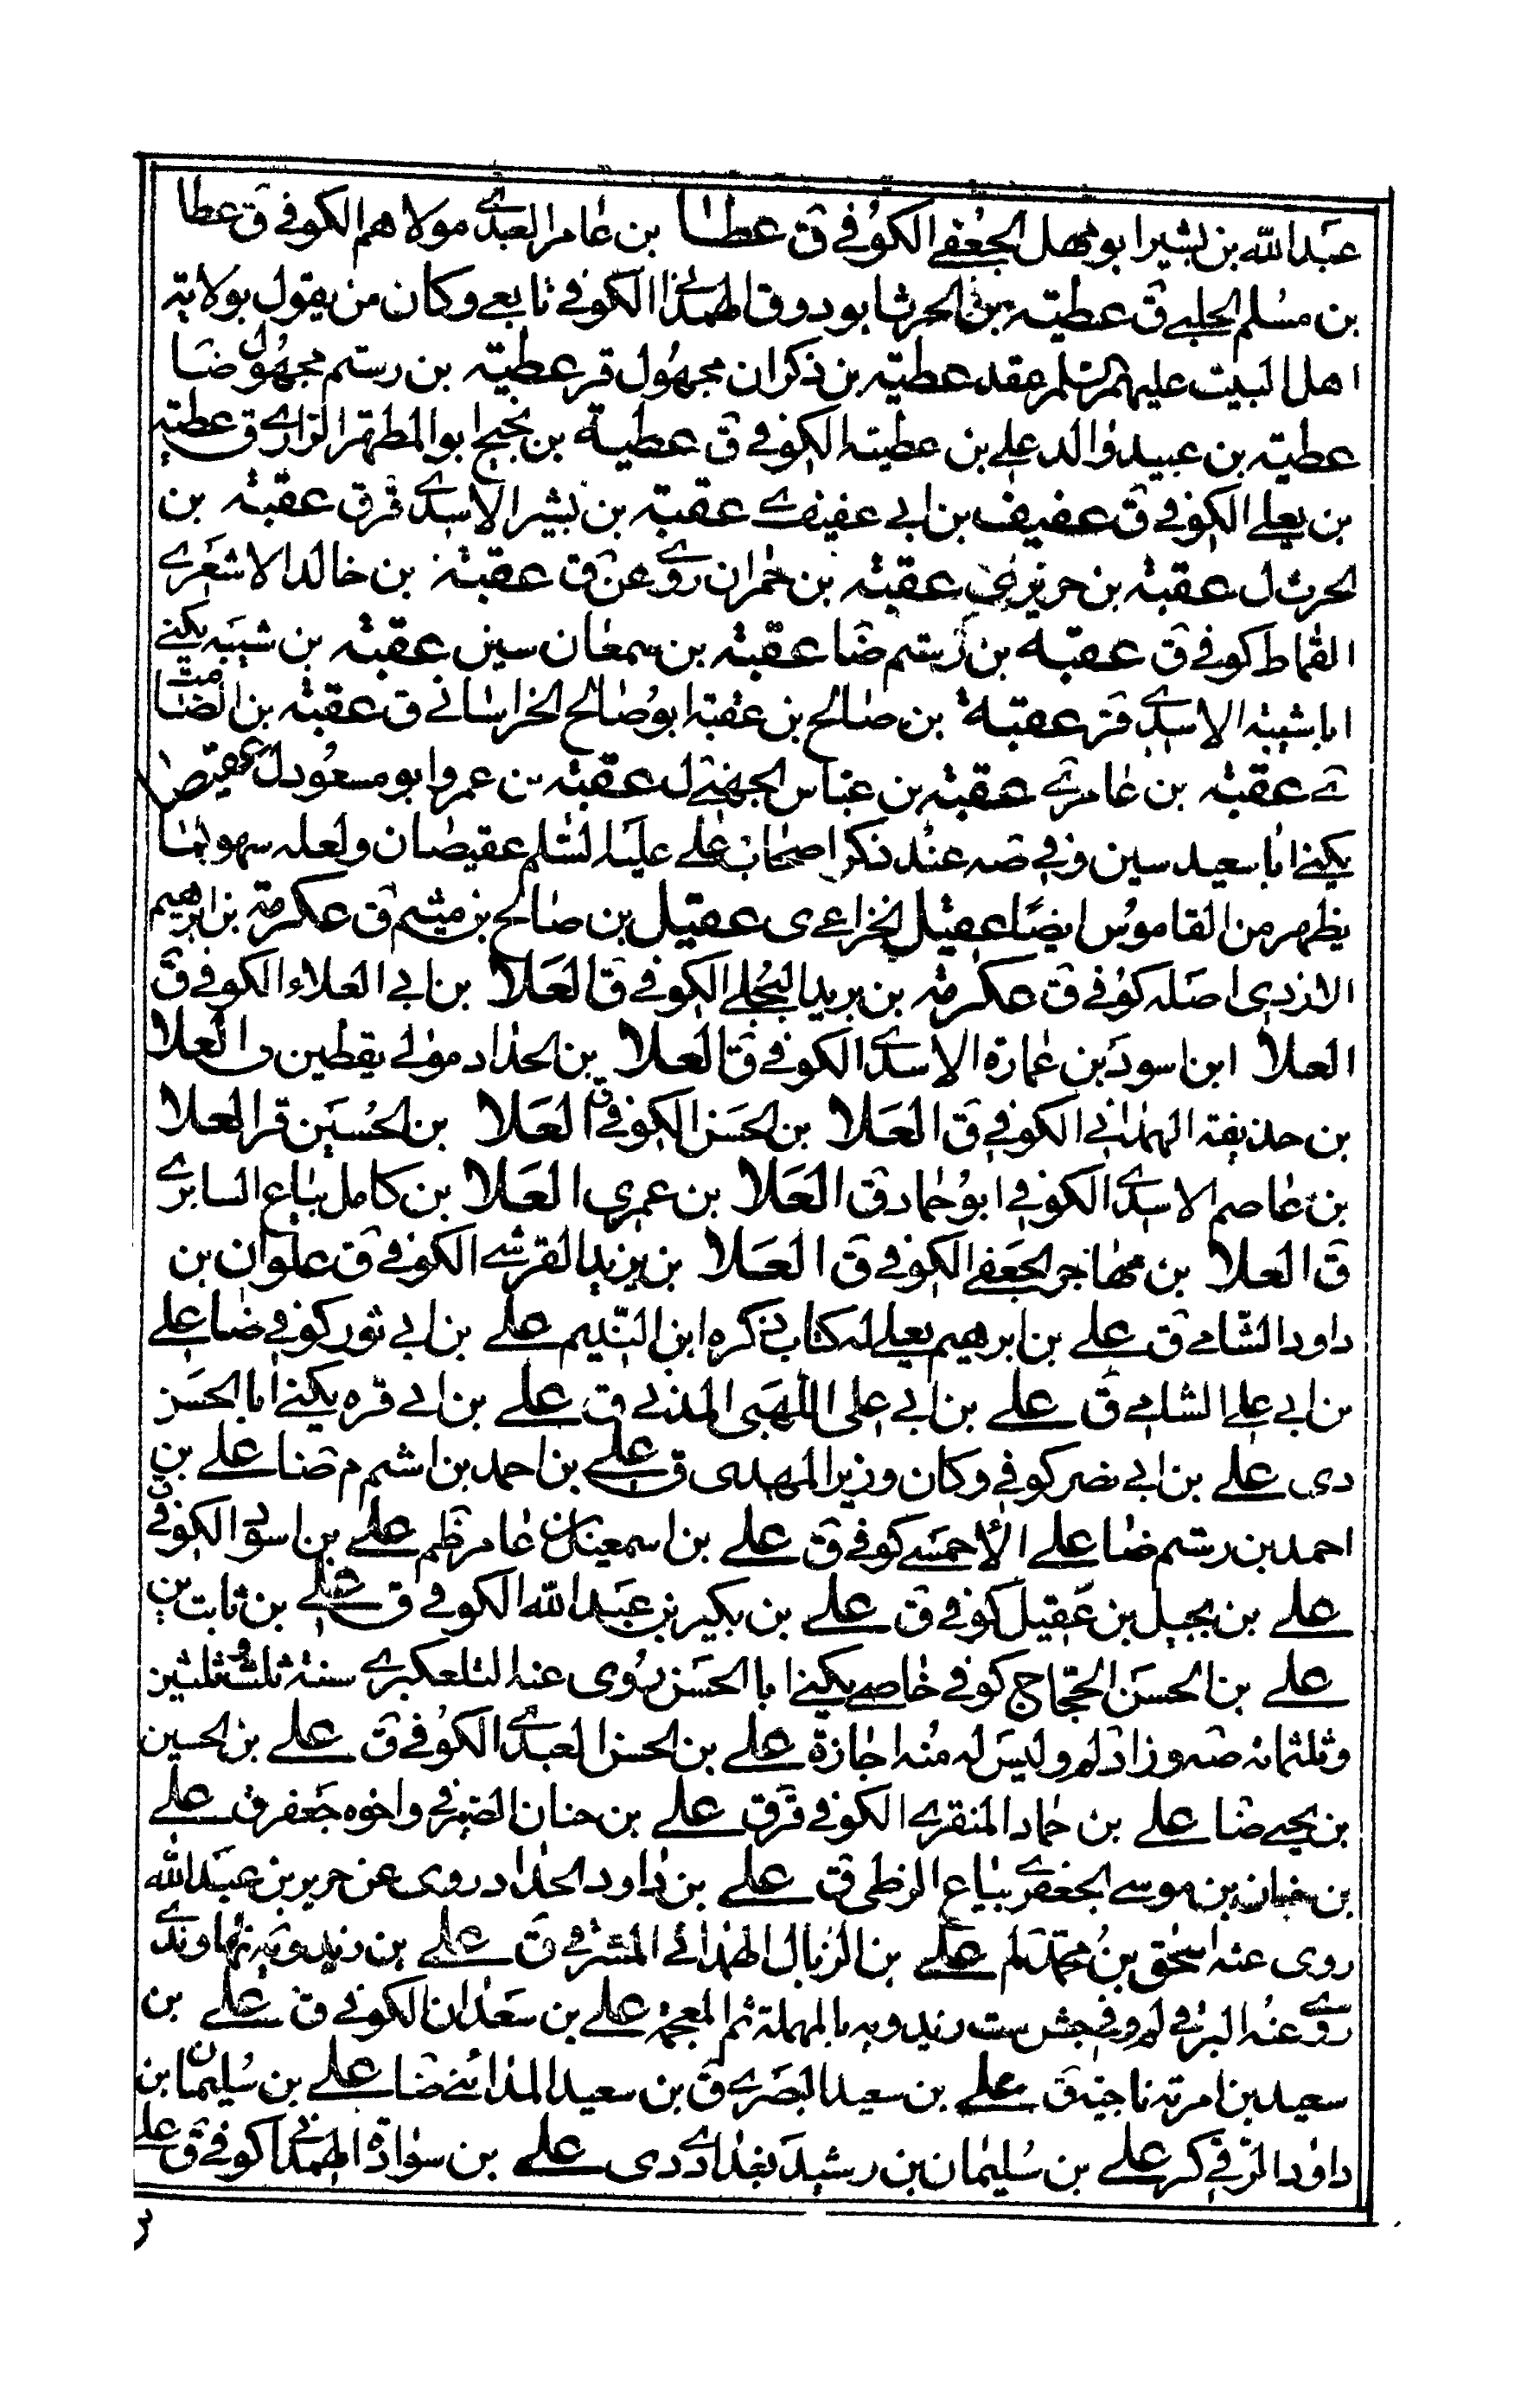 عبد الله بن بشير ابو مهل الجعفى الكوفى ق عطا بن عامر العبدى مولاهم الكوفى ق عطا
بن مسلم الحلبى ق عطية بن الحرث ابو دوق الهمدانى الكوفى تابعى وكان من يقول بولاية
اهل البيت عليهم السلم عقد عطية بن ذكران مجهول قر عطية بن رستم مجهول ضا
عطية بن عبيد والد على بن عطية الكوفى ق عطية بن نجيح ابو المطهر الرازى ق عطية
بن يعلى الكوفى ق عفيف بن ابى عفيف ى عقبة بن بشير الاسدى قر ق عقبة بن
الحرث ل عقبة بن حريز عقبة بن حمران روى عن ق عقبة بن خالد الاشعرى
القماط كوفى ق عقبة بن رستم ضا عقبة بن سمعان سين عقبة بن شيبه يكنى
ابا شيبة الاسدى قر عقبة بن صالح بن عقبة ابو صالح الخراسانى ق عقبة بن الضا
ى عقبة بن عامر ى عقبة بن عباس الجهنى ل عقبة بن عمرو ابو مسعود ل ى عقيصا
يكنى ابا سعيد سين وفى صه عند ذكر اصحاب على عليه السلم عقيصان ولعله سهو لما
يظهر من القاموس ايضا عقيل الخزاعى ى عقيل بن صالح بن ميثم ق عكرمة بن ابرهيم
الازدى اصله كوفى ق عكرمة بن بريد البجلى الكوفى ق العلا بن ابى العلاء الكوفى ق
العلا ابن اسود بن عمارة الاسدى الكوفى ق العلا بن الحذاد مولى يقطين ق العلا
بن حذيفة الهمدانى الكوفى ق العلا بن الحسن الكوفى ق العلا بن الحسين قر العلا
بن عاصم الاسدى الكوفى ابو حماد ق العلا بن عمرى العلا بن كامل بياع السابرى
ق العلا بن مهاجر الجعفى الكوفى ق العلا بن يزيد القرشى الكوفى ق علوان بن
داود الشامى ق على بن ابرهيم يعلى له كتاب ذكره ابن النديم على بن ابى ثور كوفى ضا على
بن ابى على الشامى ق على بن ابى على اللهبى المدنى ق على بن ابى قره يكنى ابا الحسن
دى على بن ابى نصر كوفى وكان وزير المهدى ق على بن احمد بن اشيم م ضا على بن
احمد بن رستم ضا على الأحمسى كوفى ق على بن اسمعيل بن عامر ظم على بن اسود الكوفى ق
على بن بجيل بن عقيل كوفى ق على بن بكير بن عبد الله الكوفى ق على بن ثابت ين
على بن الحسن الحجاج كوفى خاصى يكنى ابا الحسن روى عنه التلعكبرى سنة ثلث وثلثين
وثلثمائه صه وزاد لم وليس له منه اجازة على بن الحسن العبدى الكوفى ق على بن الحسين
بن يحيى ضا على بن حماد المنقرى الكوفى قر ق على بن حنان الصيرفى واخوه جعفر ق على
بن حنان بن موسى الجعفرى بياع الزطى ق على بن داود الحداد روى عن حريز بن عبد الله
روى عنه اسحق بن محمد لم على بن الزبال الهمدانى المشرفى ق على بن زيدويه نهاوندى
روى عنه البرقى لم وفى جش ست زيدويه بالمهملة ثم المعجمة على بن سعدان الكوفى ق على بن
سعيد بن امرته ناجية ق على بن سعيد البصرى ق بن سعيد المدائنى ضا على بن سليمان بن
داود الرقى كر على بن سليمان بن رشيد بغدادى دى على بن سوادة الهمدانى كوفى ق على